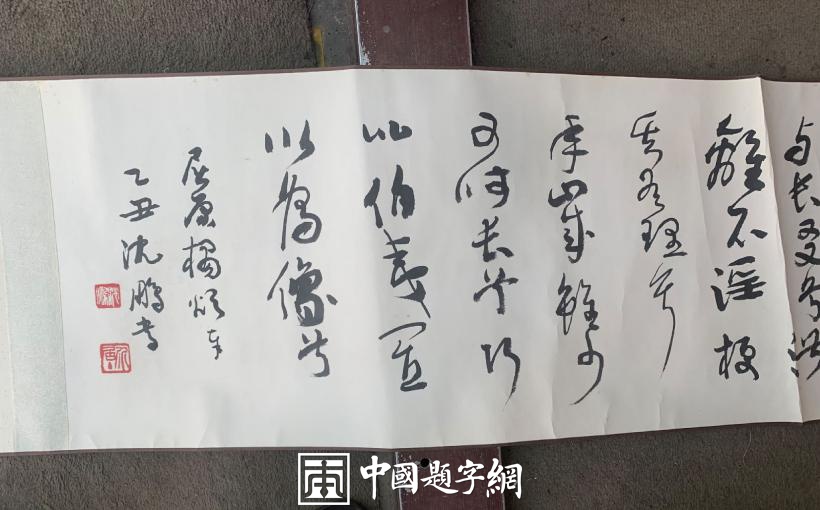 与长友兮淑
離不淫梗
其有理兮
年歲雖少
可师长兮行
比伯夷置
以為像兮
屈原橘颂
乙丑沈鹏书
中國題字網